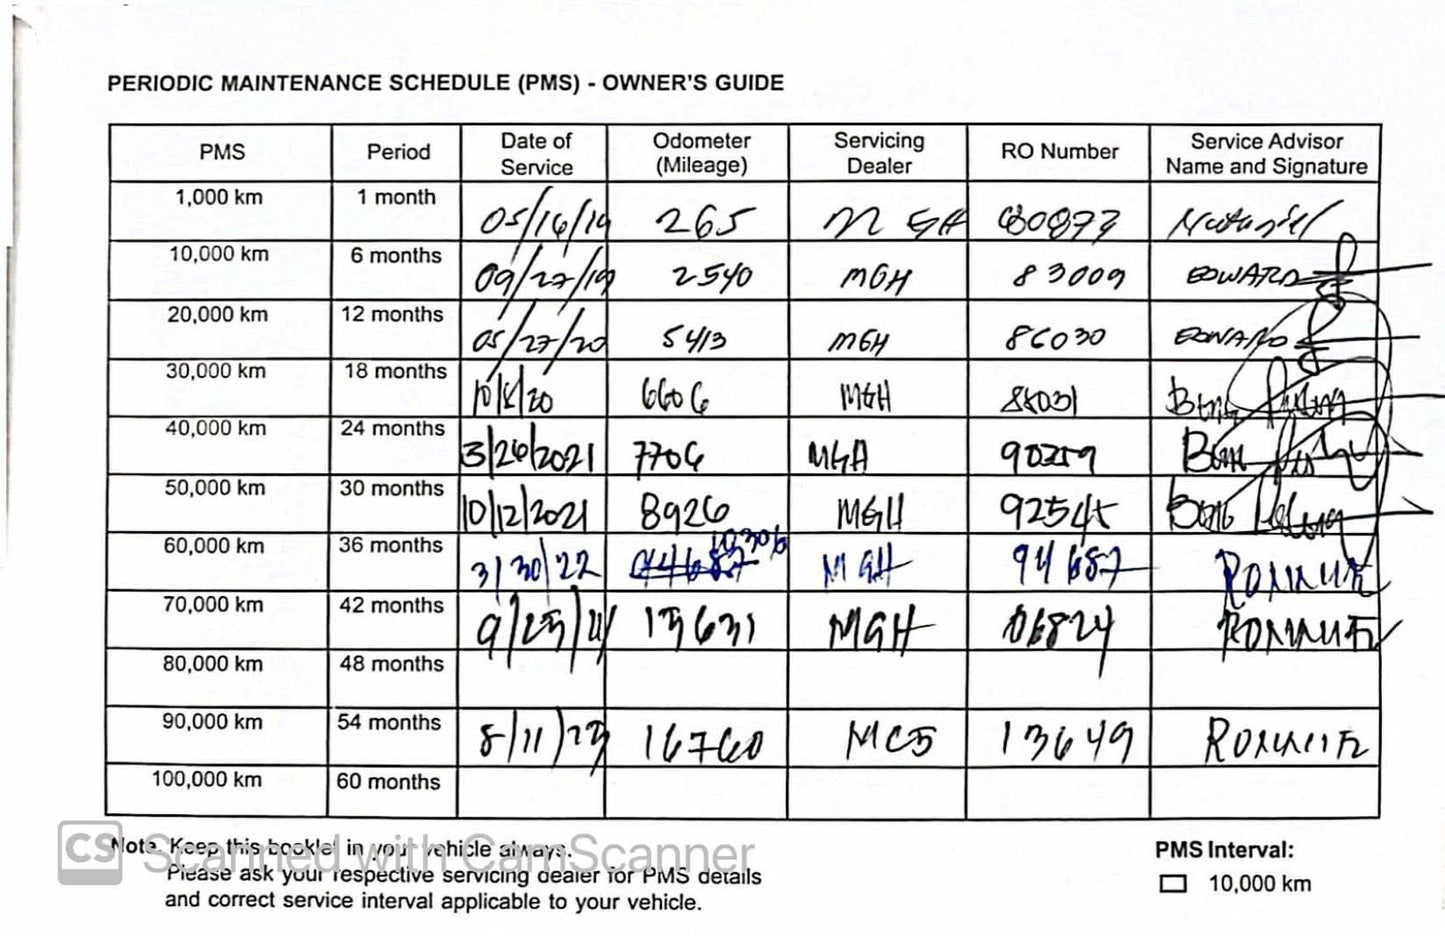 PERIODIC MAINTENANCE SCHEDULE (PMS) - OWNER'S GUIDE
PMS Period Date of Service Odometer (Mileage) Servicing Dealer RO Number Service Advisor Name and Signature
1,000 km 1 month 05/16/19 265 MGH Nataniel
10,000 km 6 months 09/27/19 2540 MGH 83009 EDWARD
20,000 km 12 months 05/27/20 5413 MGH 86030 EDWARD
30,000 km 18 months 10/8/20 6606 MGH 88031 Bong
40,000 km 24 months 3/26/2021 7706 MGH Bong
50,000 km 30 months 10/12/2021 8926 MGH 92545 Bong
60,000 km 36 months 3/30/22 10306 MGH 94687 RONNIE
70,000 km 42 months 13631 MGH 06824 RONNIE
80,000 km 48 months
90,000 km 54 months 8/11/23 16760 MC5 13649 RONNIE
100,000 km 60 months
Note. Keep this booklet in your vehicle always.
Please ask your respective servicing dealer for PMS details
and correct service interval applicable to your vehicle.
PMS Interval:
10,000 km
CS Scanned with CamScanner